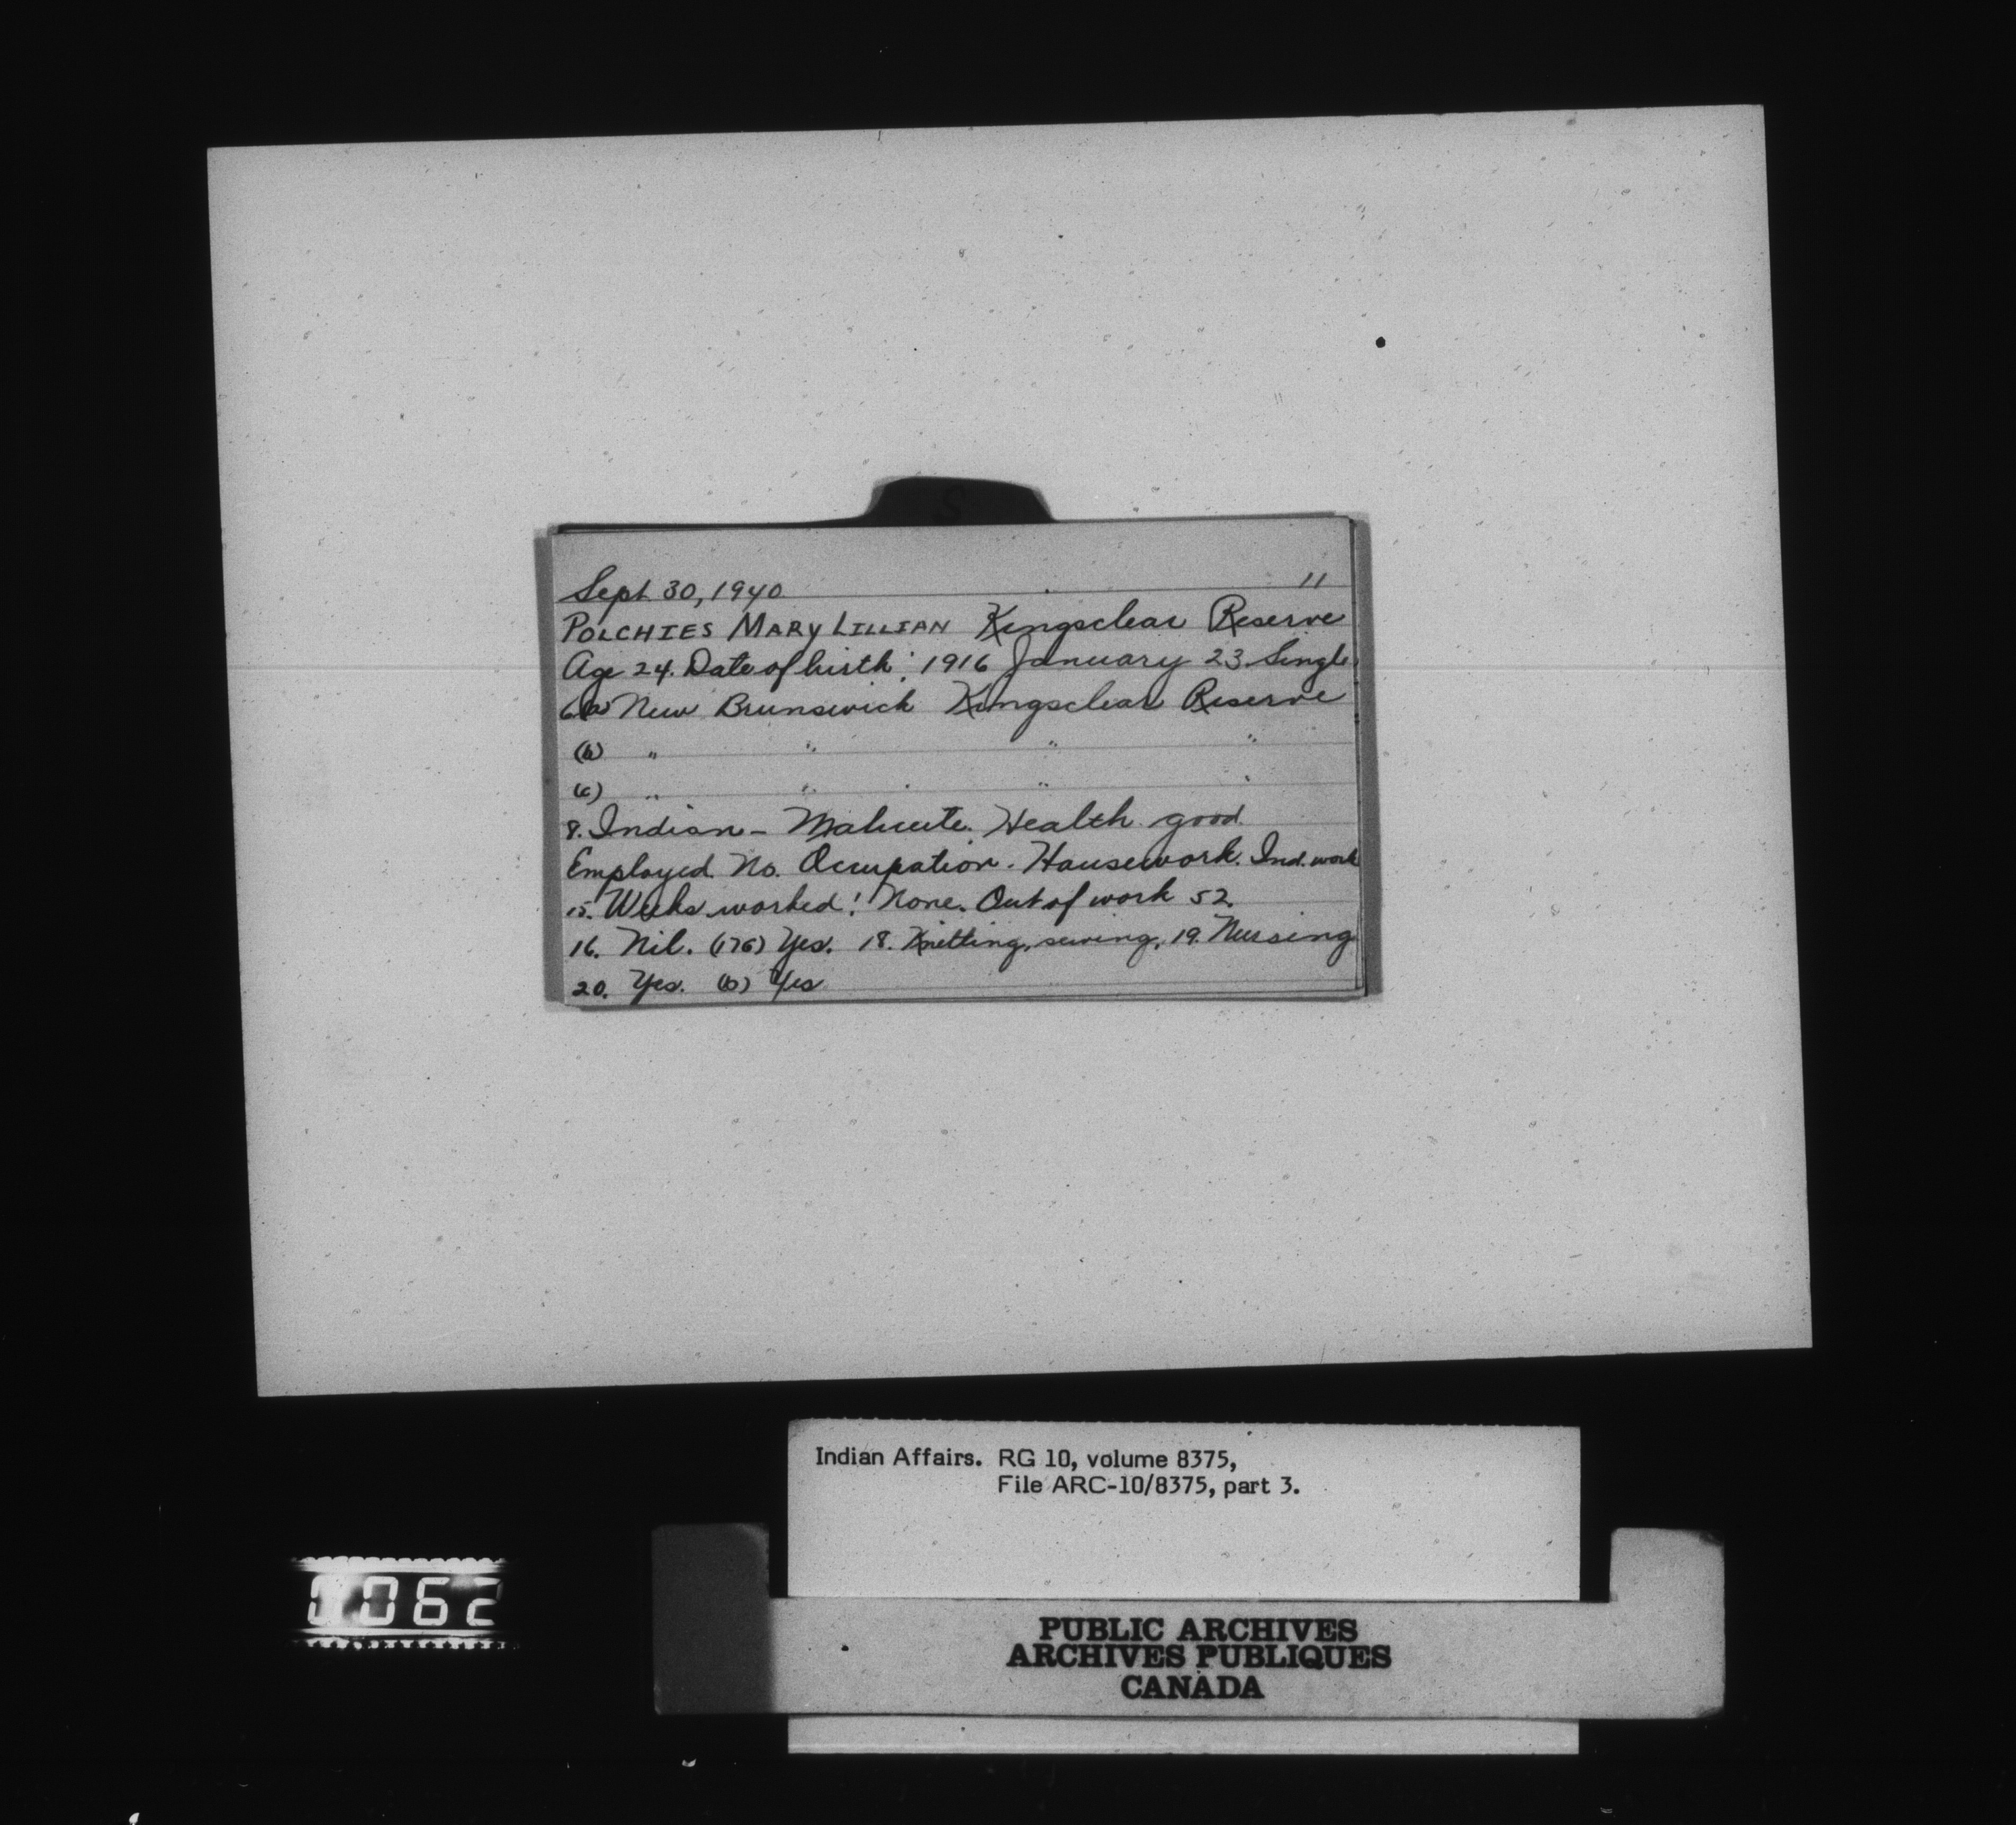 S
Sept 30, 1940 11
POLCHIES MARY LILLIAN Kingsclear Reserve
Age 24. Date of birth: 1916 January 23. Single
6(a) New Brunswick Kingsclear Reserve
(b) " " " "
(c) " " " "
8. Indian - Malicite. Health good.
Employed. No. Occupation. Housework. Ind. work
15. Weeks worked: None. Out of work 52.
16. Nil. (176) Yes. 18. Knitting, sewing, 19. Nursing
20. Yes. (b) Yes
Indian Affairs. RG 10, volume 8375,
File ARC-10/8375, part 3.
0062
PUBLIC ARCHIVES
ARCHIVES PUBLIQUES
CANADA